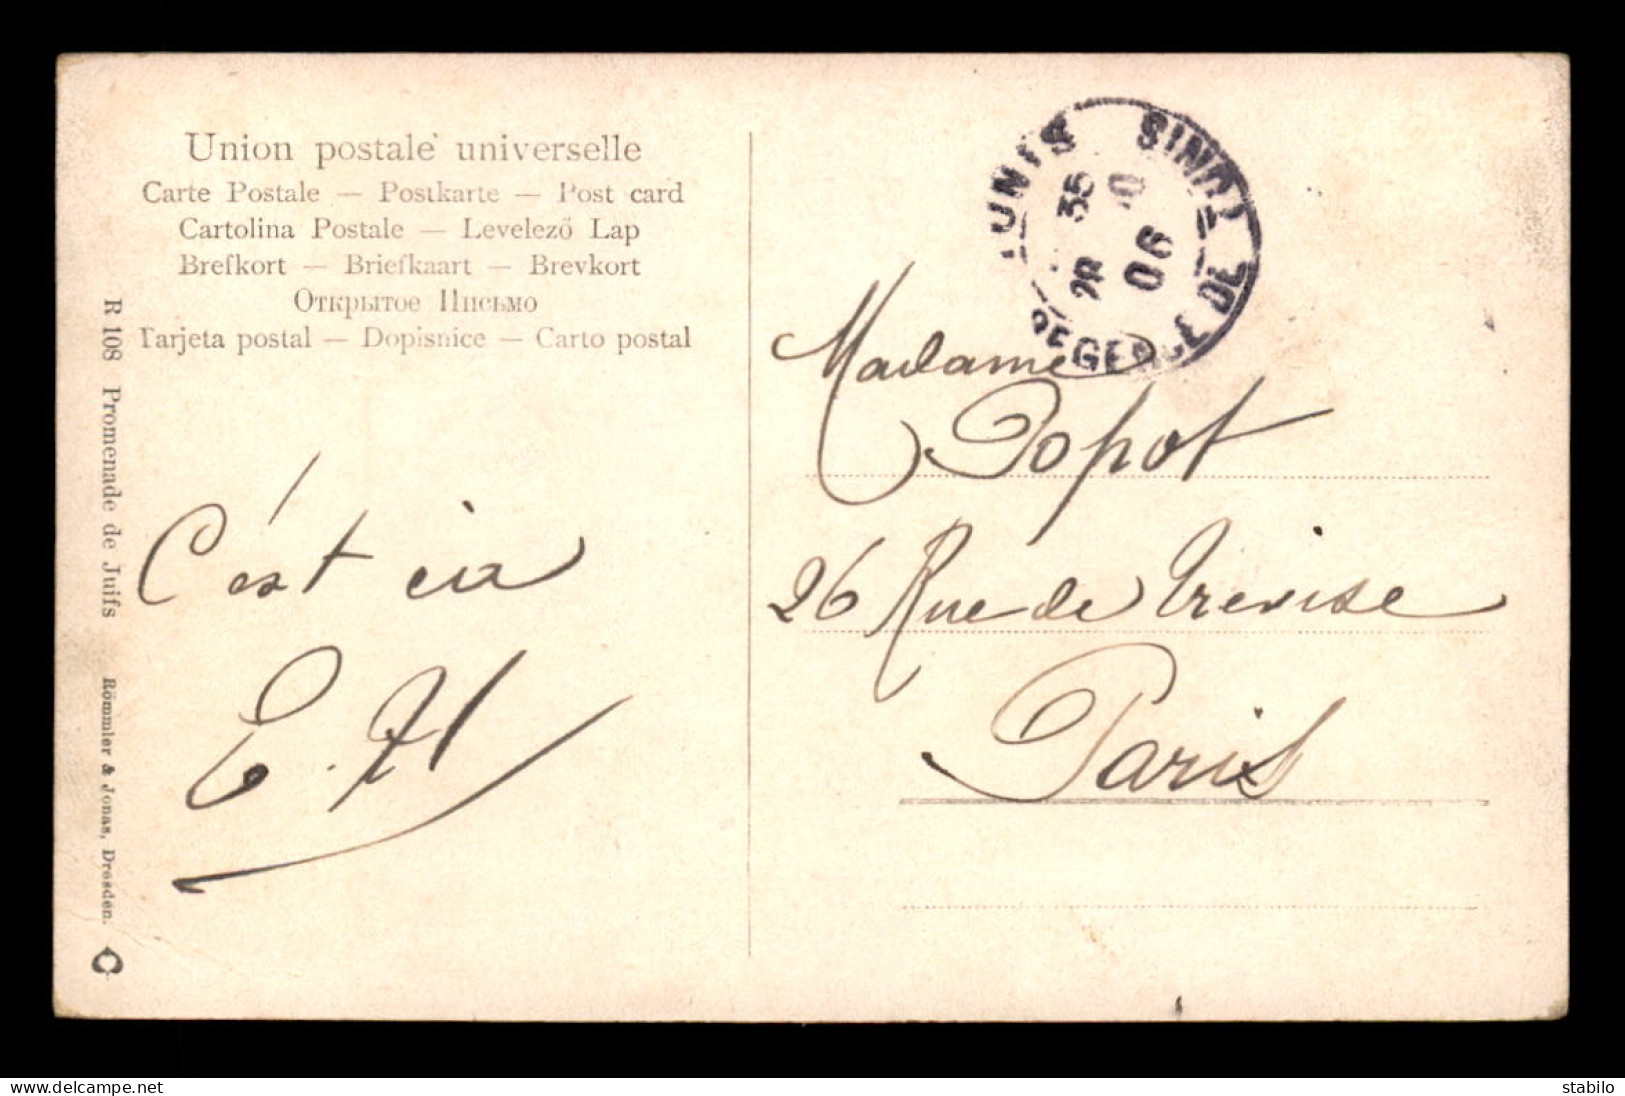 Union postale universelle
Carte Postale — Postkarte — Post card
Cartolina Postale — Levelező Lap
Brefkort — Briefkaart — Brevkort
Открытое Письмо
Tarjeta postal — Dopisnice — Carto postal
R 108 Promenade de Juifs Römmler & Jonas, Dresden.
C'est
E. H
TUNIS TUNIS
35 10
28 06
REGENCE DE
Madame
Popot
26 Rue de Trevise
Paris
delcampe.net
stabilo